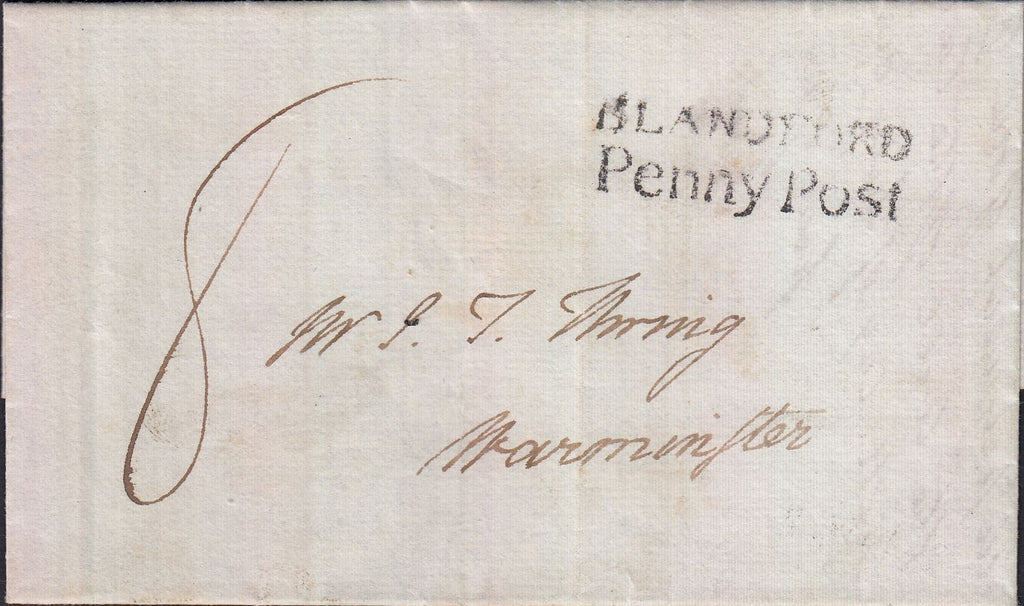 BLANDFORD
Penny Post
8
Mr J. T. Thring
Warminster